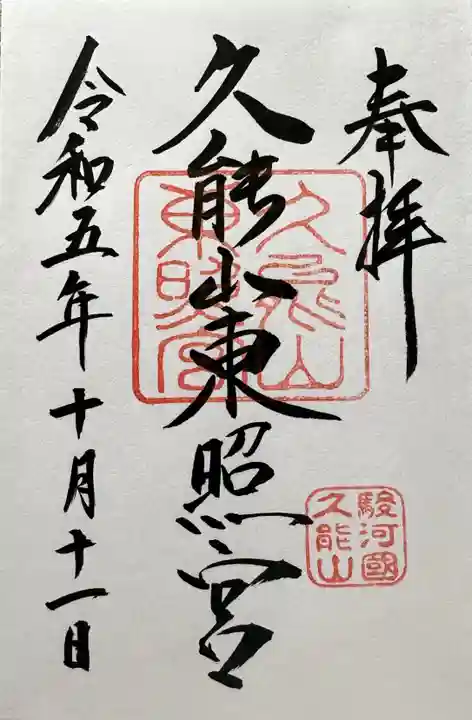 奉拝
久能山東照宮
久能山
東照宮
駿河國
久能山
令和五年十月十一日